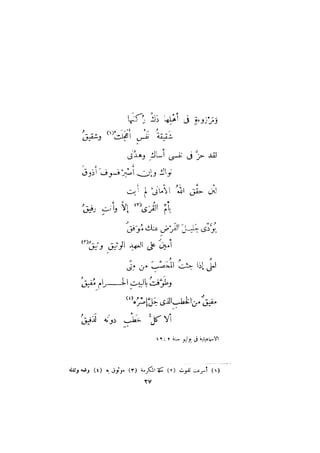 شقيقة نفس أُعْجِلَتْ(١) وشقيقُ
لقد حزّ فى نفسى أساكِ وهدّنى
نواك وإن أصبر فسوف أذوقُ
لئن حقّق اللهُ الأمانىَّ لم أبت
بأُمِّ القُرَى(٢) إلّا وأنتِ رفيقُ
يُؤدِّى جليلَ الفَرْضِ عنك مُوَفَّقٌ
أمينٌ على العهدِ الوثيقِ وثيقُ(٣)
لعلى إذا جئتُ المُحَصَّبَ من مِنًى
وطَوَّفْتُ بالبيتِ الحرامِ مُفيقُ
مفيقٌ من الخطب الذى جَلَّ إصْرُه(٤)
ألا كلُّ خَطْبٍ دونَه لَدَقيقُ
الاسماعيلية فى يوليو سنة ١٩٣٥
(١) أسرعت للموت (٢) مكة المكرمة (٣) موثوق به (٤) وقعه وثقله
٢٧